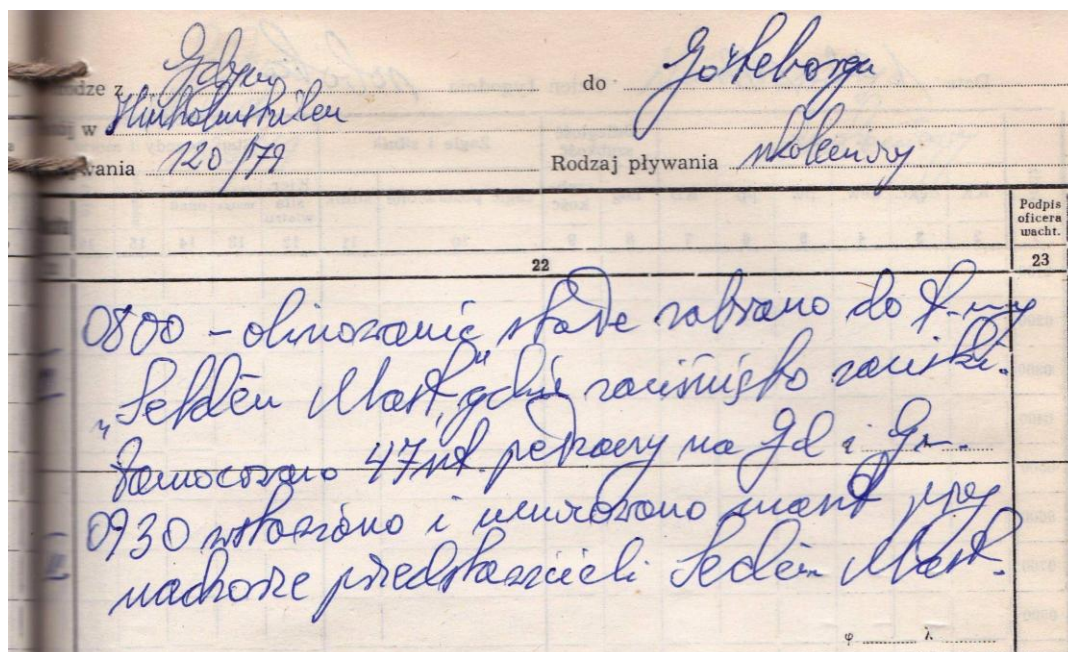 odze z Gdyni do Göteborga
w Hinholmskilen
wania 120/79 Rodzaj pływania szkoleniowy
Podpis
oficera
wacht.
22 23
0800 – olinowanie stałe zabrano do f-my
„Seldén Mast", gdzie zaciśnięto zaciski.
Zamocowano 47 szt. petzaczy na Gd i Gr.
0930 wstawiono i umocowano maszt przy
nadzorze przedstawicieli Seldén Mast.
φ λ